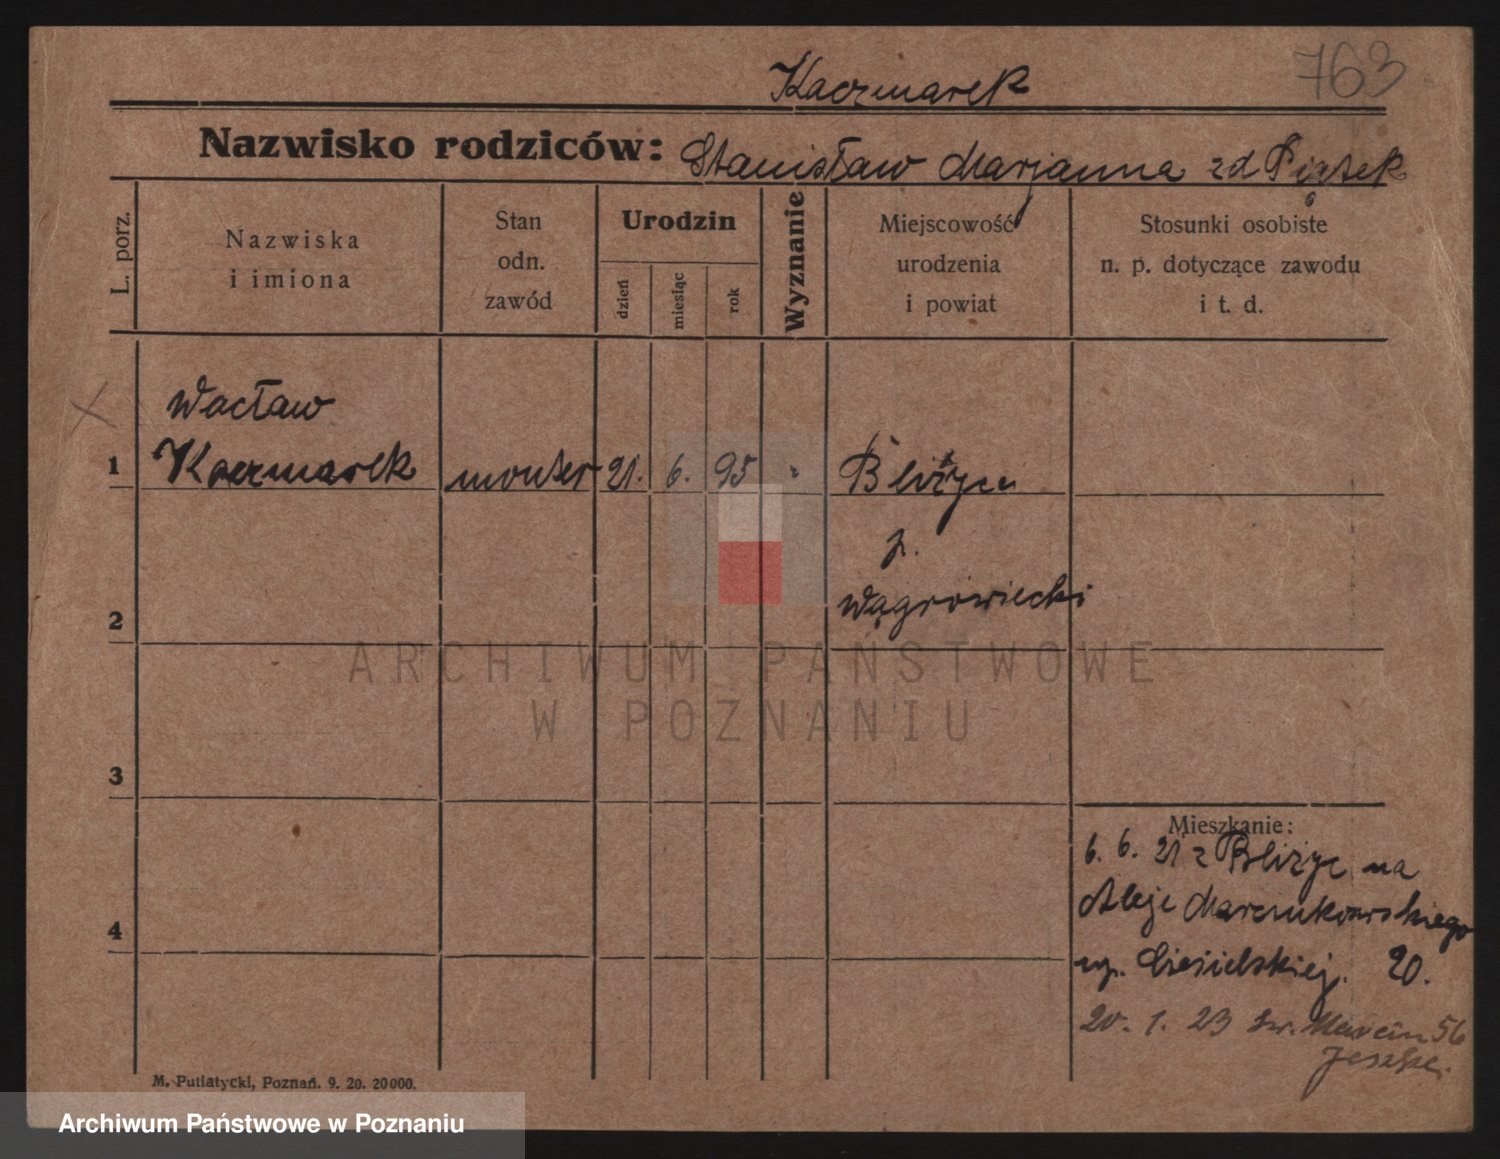 763
Kaczmarek
Nazwisko rodziców: Stanisław Marjanna zd Piątek
L. porz.
Nazwiska
i imiona
Stan
odn.
zawód
Urodzin
dzień
miesiąc
rok
Wyznanie
Miejscowość
urodzenia
i powiat
Stosunki osobiste
n. p. dotyczące zawodu
i t. d.
Wacław
1 Kaczmarek monter 21. 6. 95 Bliżyce
p.
2 wągrowiecki
3
4
Mieszkanie:
6. 6. 21 z Bliżyc na
Aleje Marcinkowskiego
Ciesielskiej. 20.
20. 1. 23 św. Marcin 56
M. Putiatycki, Poznań. 9. 20. 20000.
ARCHIWUM PAŃSTWOWE
W POZNANIU
Archiwum Państwowe w Poznaniu